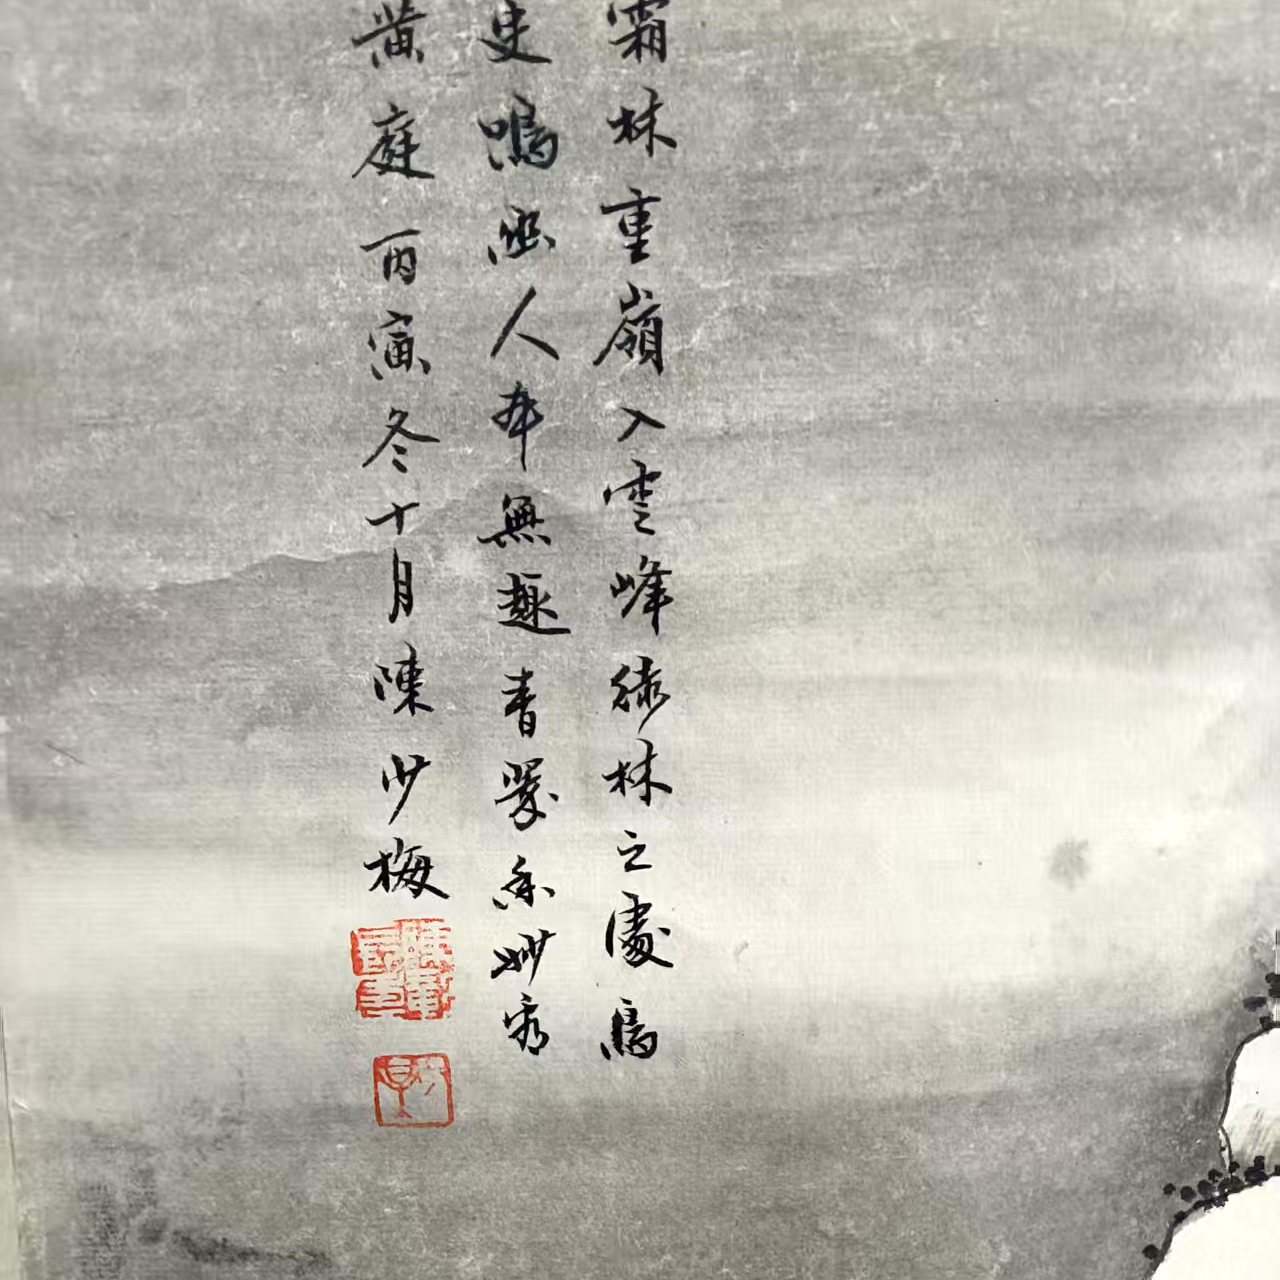 霜林重嶺入雲峰綠林之處鳥
史鳴幽人本無趣書罷香妙
黄庭丙寅冬十月陳少梅